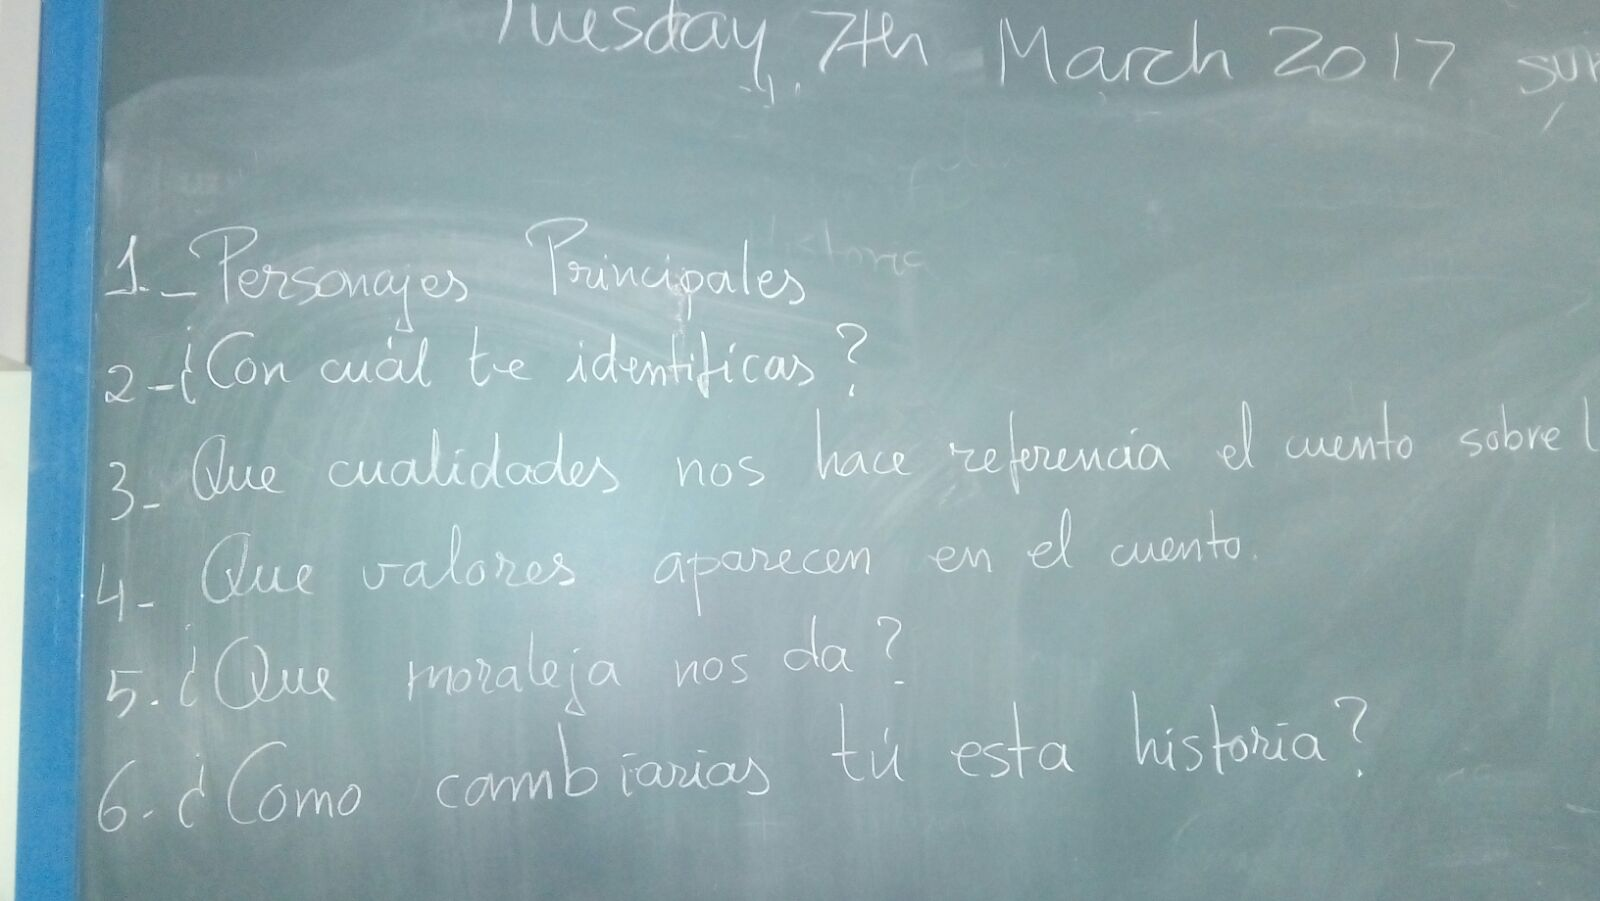 Tuesday, 7th March 2017
1._ Personajes Principales
2-¿Con cuál te identificas?
3- Que cualidades nos hace referencia el cuento sobre
4- Que valores aparecen en el cuento.
5-¿Que moraleja nos da?
6-¿Como cambiarias tú esta historia?